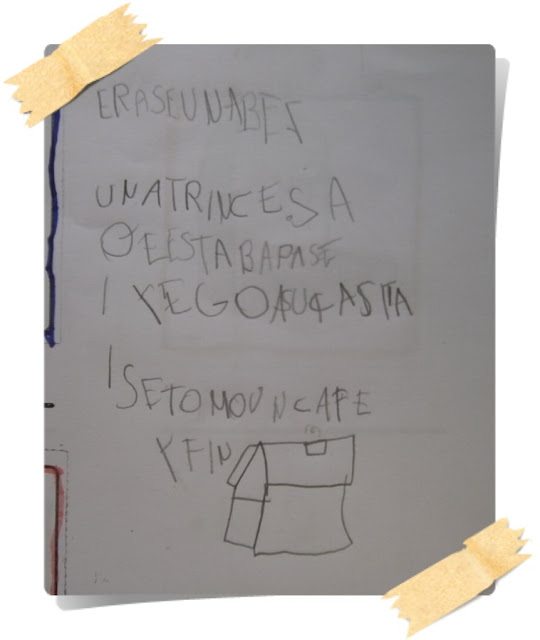 ERASEUNABES
UNATRINCESA
QEESTABAPASE
I YEGOASUCASITA
I SETOMOUNCAFE
Y FIN